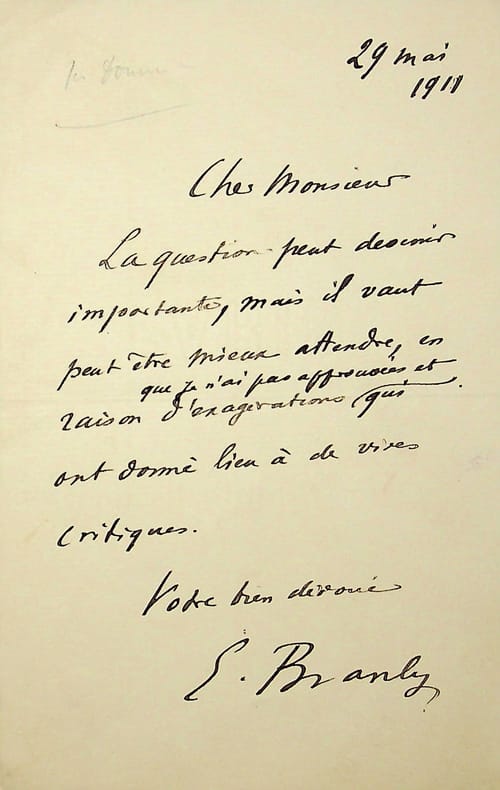 29 mai
1911
Cher Monsieur
La question peut devenir
importante, mais il vaut
peut être mieux attendre, en
que je n'ai pas approuvées et
raison d'exagérations qui
ont donné lieu à de vives
critiques.
Votre bien dévoué
E. Branly